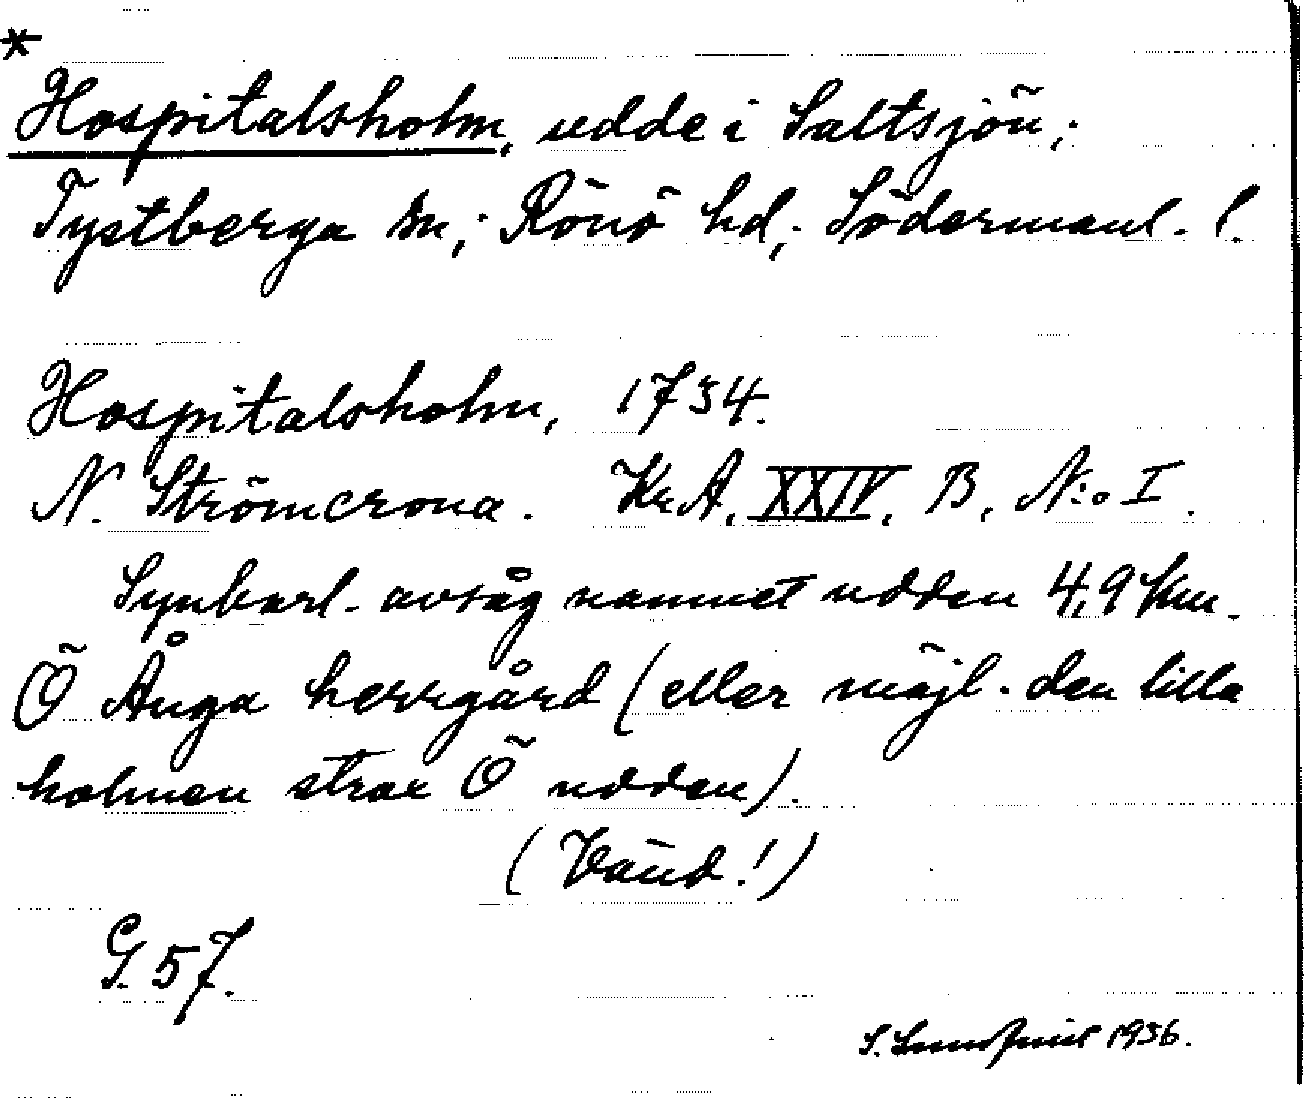 *
Hospitalsholm, udde i Saltsjön;
Tystberga sn; Rönö hd, Södermanl. l.
Hospitalsholm, 1734.
N. Strömcrona. Kr.A. XXIV, B, N:o I.
Synbarl. avsåg namnet udden 4,9 km.
Ö Ånga herrgård (eller möjl. den lilla
holmen strax Ö udden).
(Vänd!)
G. 57.
S. Lundqvist 1936.